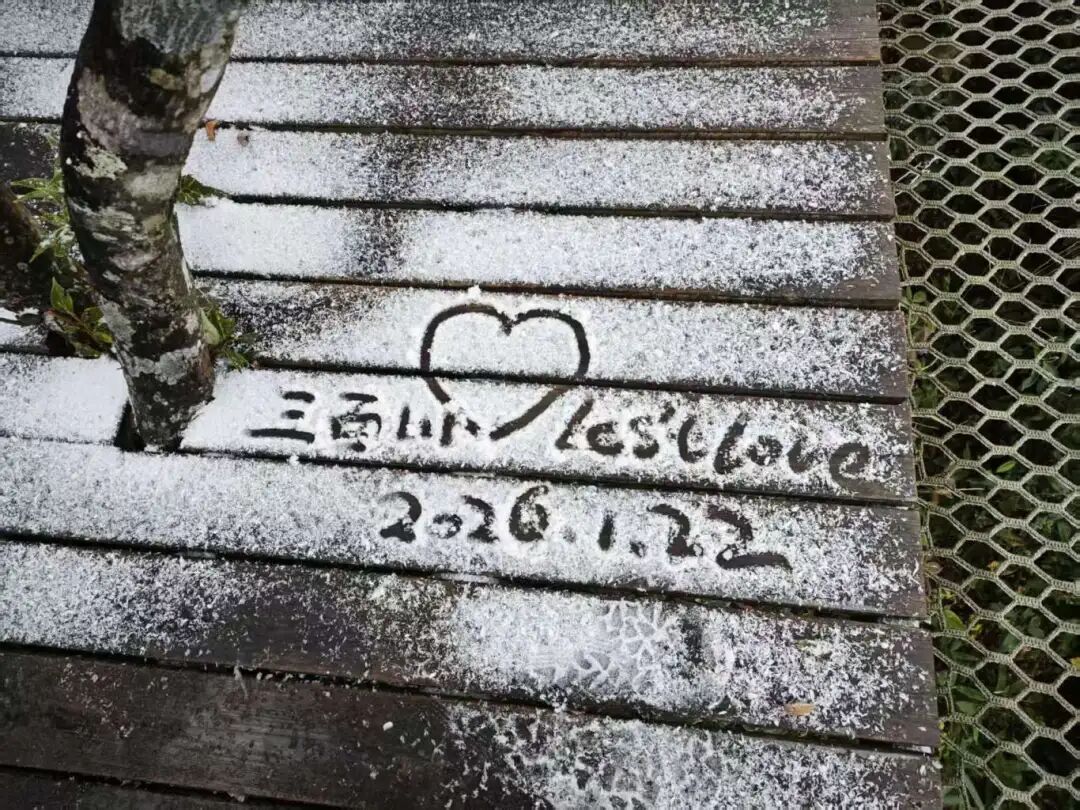 三面山 Les't love
2026.1.22